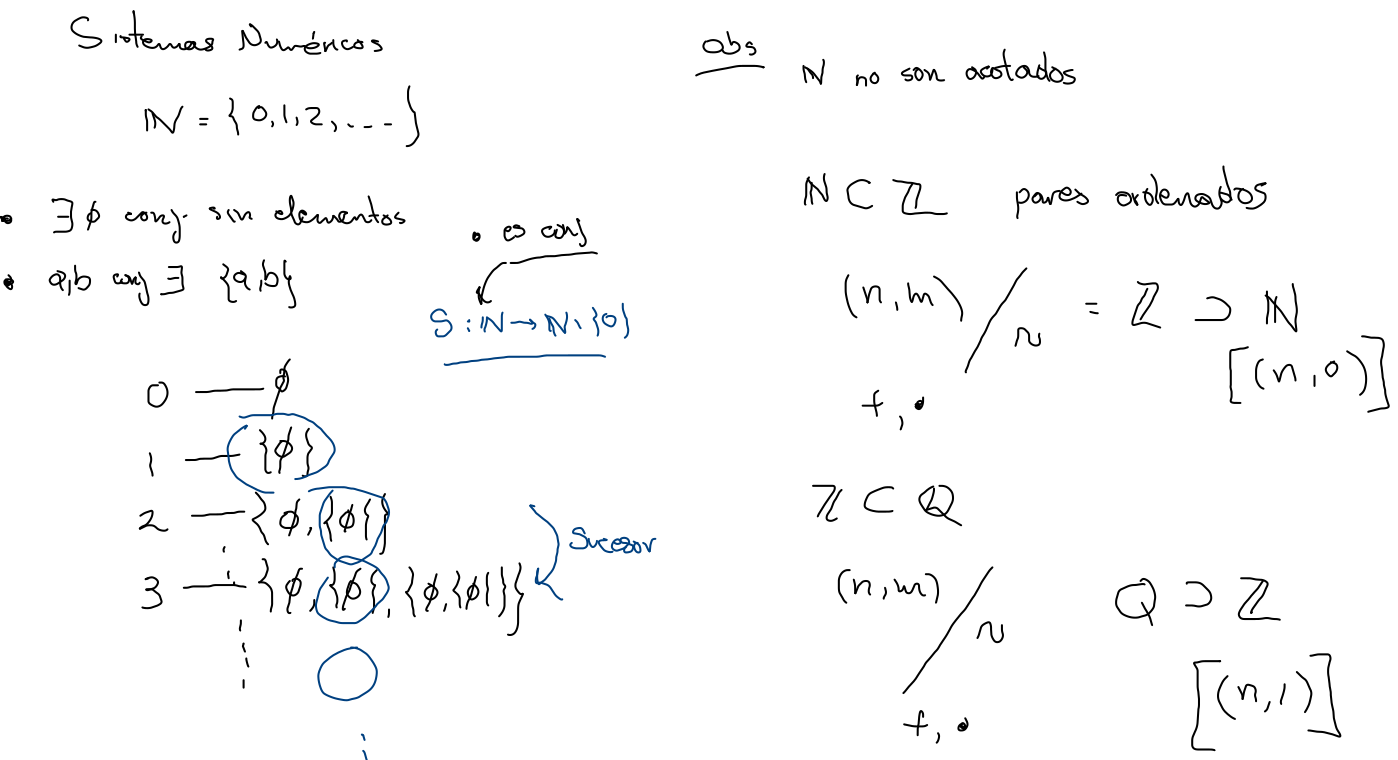 Sistemas Numéricos
ℕ = {0,1,2,...}
• ∃ φ conj. sin elementos
• a,b conj ∃ {a,b}
• es conj
S : ℕ → ℕ \ {0}
0 — φ
1 — {φ}
2 — {φ, {φ}}
3 — {φ, {φ}, {φ,{φ}}}
Sucesor
obs
ℕ no son acotados
ℕ ⊂ ℤ pares ordenados
(n,m) / ~ = ℤ ⊃ ℕ
[(n,0)]
+, •
ℤ ⊂ ℚ
(n,m) / ~ ℚ ⊃ ℤ
[(n,1)]
+, •